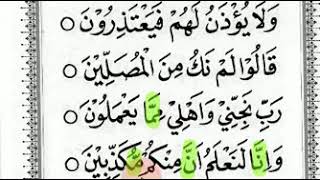 وَلَا يُؤْذَنُ لَهُمْ فَيَعْتَذِرُوْنَ ○
قَالُوْا لَمْ نَكُ مِنَ الْمُصَلِّيْنَ ○
رَبِّ نَجِّنِيْ وَاَهْلِيْ مِمَّا يَعْمَلُوْنَ ○
وَاِنَّا لَنَعْلَمُ اَنَّ مِنْكُمْ مُّكَذِّبِيْنَ ○